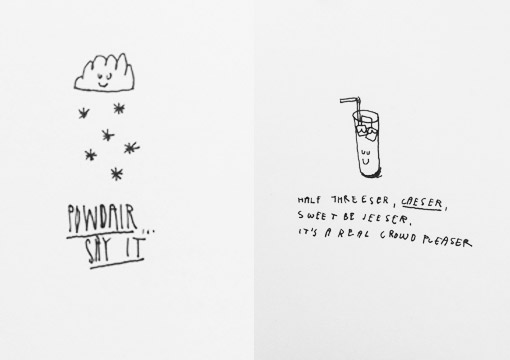 POWDAIR...
SAY IT
HALF THREESER, CAESER,
SWEET BE JEESER,
IT'S A REAL CROWD PLEASER